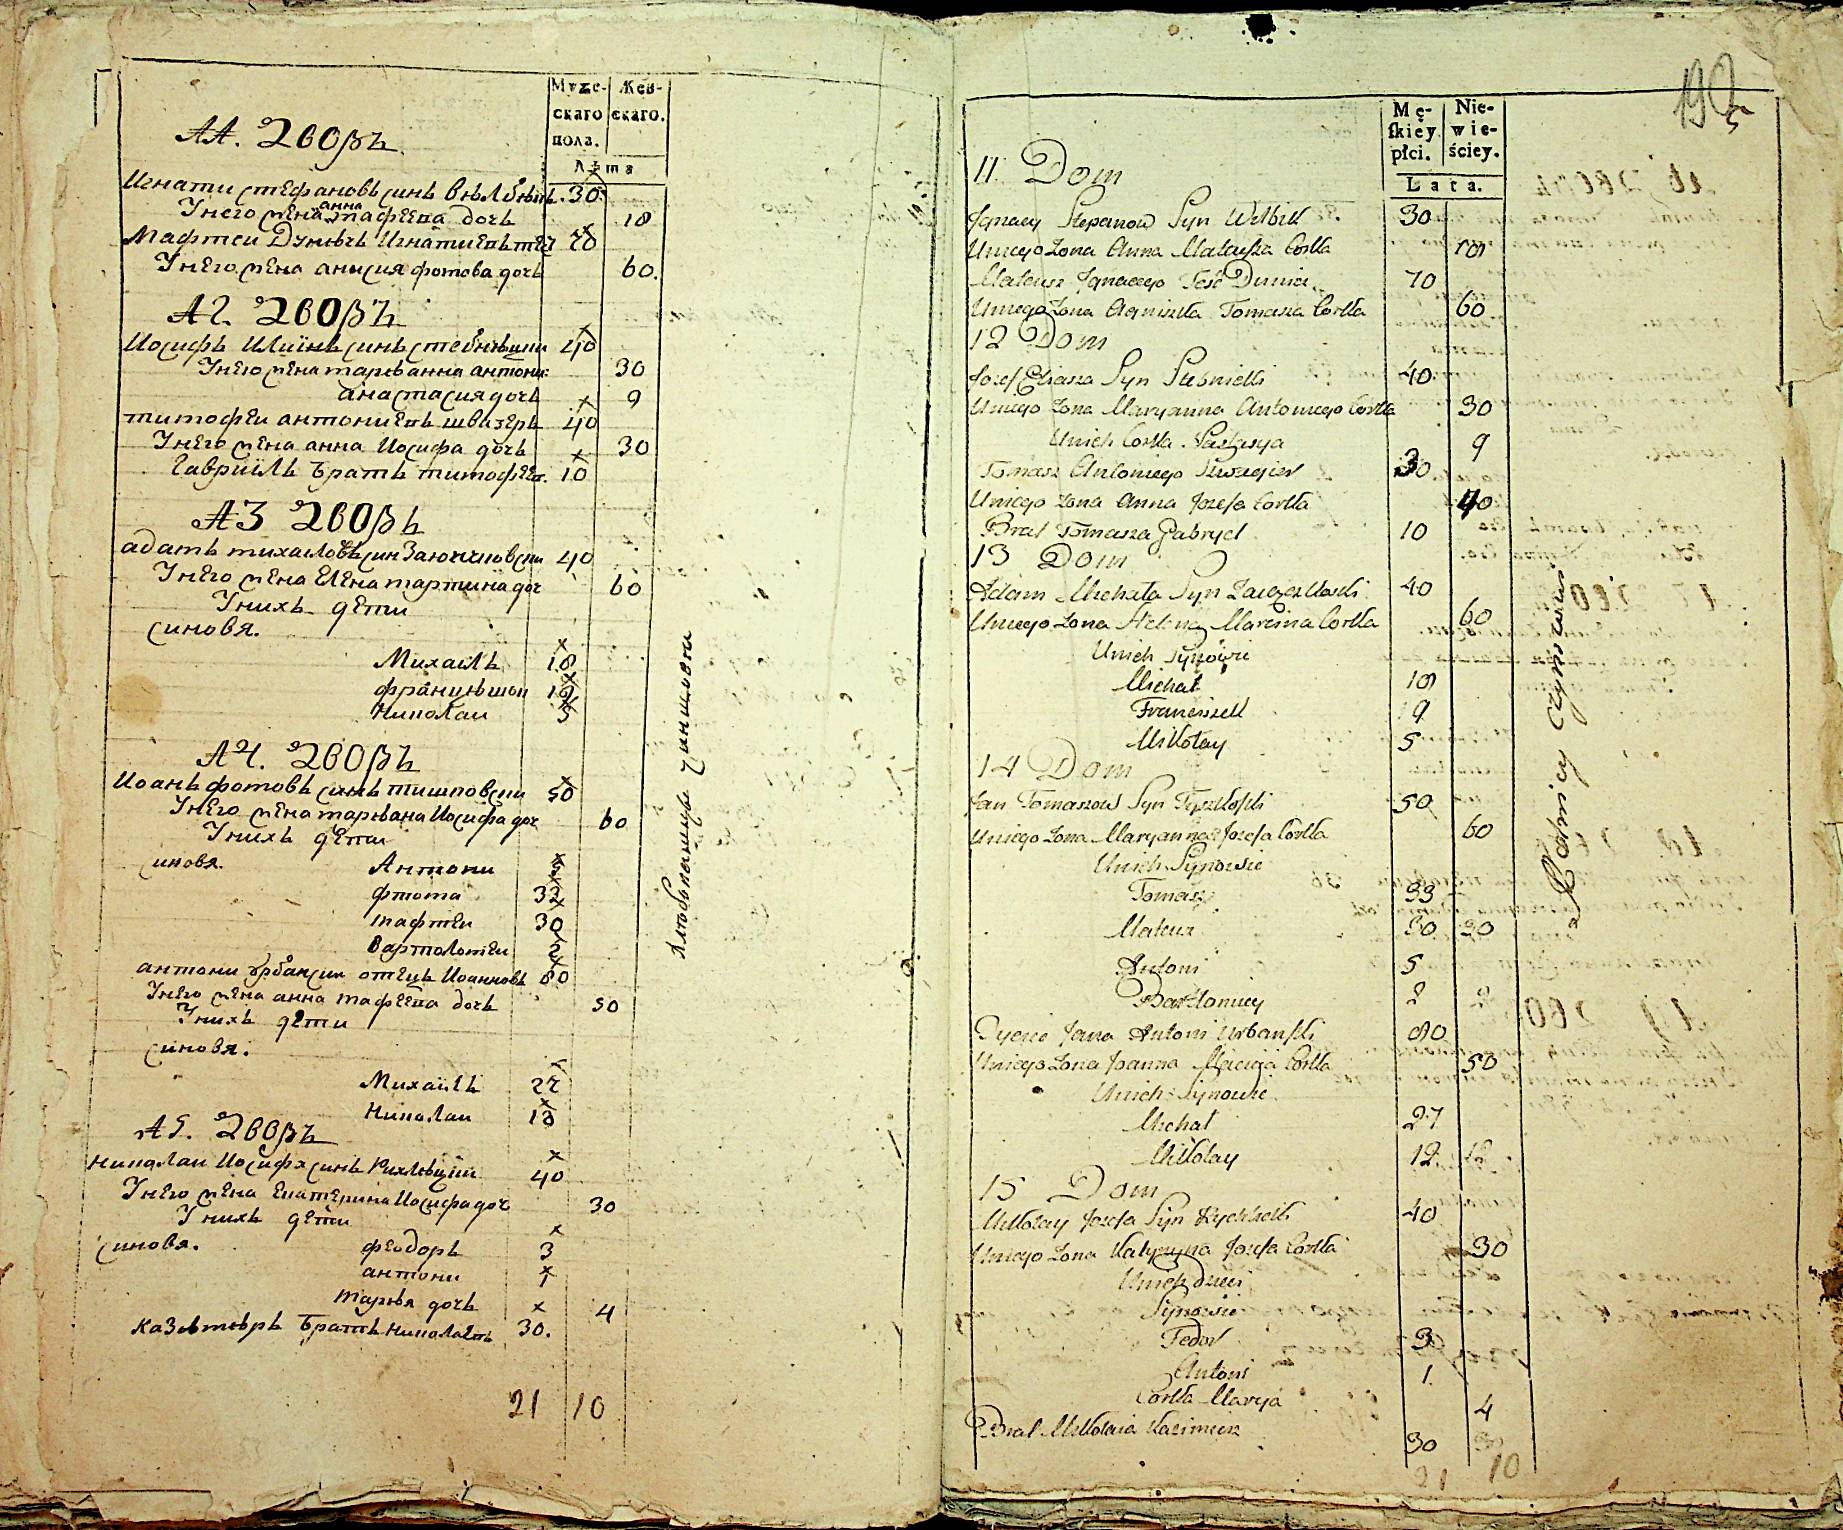 Муже-
скаго
пола.
Жен-
скаго.
Лѣта
11. Дворъ
Игнати Стефановъ синъ Велбикъ 30
У него жена анна мафеева дочь 18
Мафтеи Дуничь Игнатиевъ тесть 70
У него жена анисия фомова дочь 60.
12. Дворъ
Иосифъ Илиинъ синъ стебницки 40
У него жена марианна антони: 30
анастасия дочь 9
тимофеи антониевъ швагеръ 40
У него жена анна Иосифа дочь 30
Гавриилъ братъ тимофеев. 10
13 Дворъ
адамъ михаиловъ син Заюнчковски 40
У него жена Елена мартина доч 60
У нихъ дети
синовя.
Михаилъ 18
францишки
Николаи 5
14. Дворъ
Иоанъ фомовъ синъ тишковски 50
У него жена марианна Иосифа доч 60
У нихъ дети
иновя. Антони 5
фтома 32
мафтеи 30
Вартоломеи 2
антони урбански отецъ Иоанновъ 80
У него жена анна мафеева дочь 50
У нихъ дети
синовя.
Михаилъ 27
Николаи 13
15. Дворъ
Николаи Иосифа синъ Рихлицки 40
У него жена Екатерина Иосифа доч 30
У нихъ дети
Синовя. феодоръ 3
антони 1
мария дочь 4
казимеръ братъ николаевъ 30.
21 10
Mę-
skiey
płci.
Nie-
wie-
ściey.
Lata.
11. Dom
Jgnacy Stepanow Syn Welbik 30
Uniego Zona Anna Mateusza Corka 18
Mateusz Jgnacego Teść Dunicz 70
Uniego Zona Agniszka Tomasza Corka 60
12 Dom
Jozef Eliasza Syn Stebnicki 40
Uniego Zona Maryanna Antoniego Corka 30
Unich Corka Nastasya 9
Tomasz Antoniego Szwagier 30
Uniego Zona Anna Jozefa Corka 40
Brat Tomasza Gabryel 10
13 Dom
Adam Michała Syn Zaiączkoski 40
Uniego Zona Helena Marcina Corka 60
Unich Synowie
Michał 18
Franciszek 9
Mikołay 5
14 Dom
Jan Tomaszow Syn Tyszkoski 50
Uniego Zona Maryanna Jozefa Corka 60
Unich Synowie
Tomasz 33
Mateusz 30
Antoni 5
Bartłomiey 2
Oyciec Jana Antoni Urbanski 80
Uniego Zona Joanna Macieja Corka 50
Unich Synowie
Michał 27
Mikołay 12
15 Dom
Mikołay Jozefa Syn Rychlicki 40
Uniego Zona Katyrzyna Jozefa Corka 30
Unich Dzieci
Synowie
Fedor 3
Antoni 1.
Corka Marya 4
Brat Mikołaia Kazimierz 30
21 10
Czynszowi